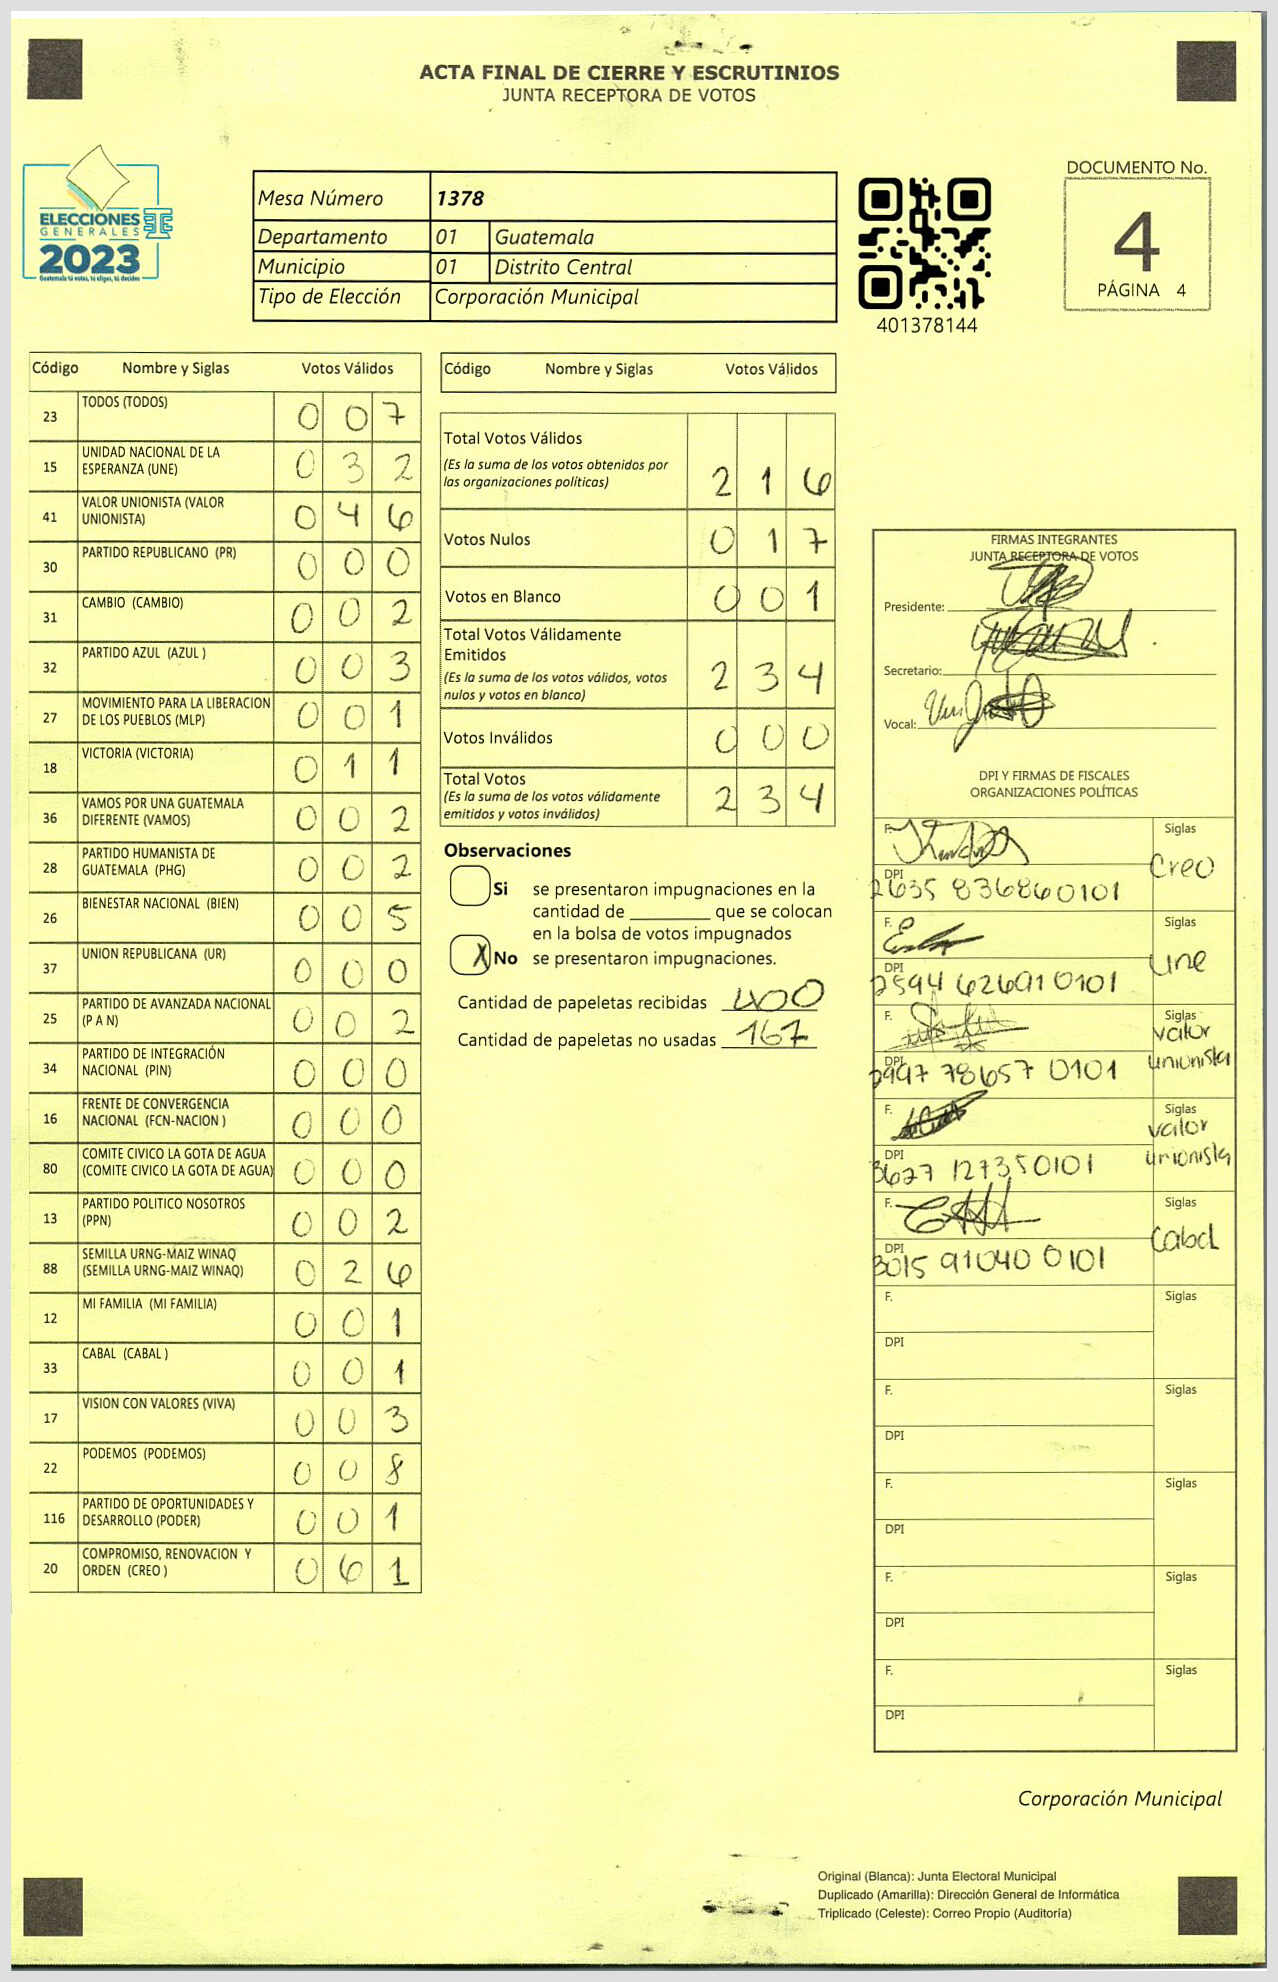 ACTA FINAL DE CIERRE Y ESCRUTINIOS
JUNTA RECEPTORA DE VOTOS
ELECCIONES
GENERALES
2023
Guatemala tú votas, tú eliges, tú decides
Mesa Número 1378
Departamento 01 Guatemala
Municipio 01 Distrito Central
Tipo de Elección Corporación Municipal
401378144
DOCUMENTO No.
4
PÁGINA 4
Código Nombre y Siglas Votos Válidos
23 TODOS (TODOS) 0 0 7
15 UNIDAD NACIONAL DE LA
ESPERANZA (UNE) 0 3 2
41 VALOR UNIONISTA (VALOR
UNIONISTA) 0 4 6
30 PARTIDO REPUBLICANO (PR) 0 0 0
31 CAMBIO (CAMBIO) 0 0 2
32 PARTIDO AZUL (AZUL ) 0 0 3
27 MOVIMIENTO PARA LA LIBERACION
DE LOS PUEBLOS (MLP) 0 0 1
18 VICTORIA (VICTORIA) 0 1 1
36 VAMOS POR UNA GUATEMALA
DIFERENTE (VAMOS) 0 0 2
28 PARTIDO HUMANISTA DE
GUATEMALA (PHG) 0 0 2
26 BIENESTAR NACIONAL (BIEN) 0 0 5
37 UNION REPUBLICANA (UR) 0 0 0
25 PARTIDO DE AVANZADA NACIONAL
(P A N) 0 0 2
34 PARTIDO DE INTEGRACIÓN
NACIONAL (PIN) 0 0 0
16 FRENTE DE CONVERGENCIA
NACIONAL (FCN-NACION ) 0 0 0
80 COMITE CIVICO LA GOTA DE AGUA
(COMITE CIVICO LA GOTA DE AGUA) 0 0 0
13 PARTIDO POLITICO NOSOTROS
(PPN) 0 0 2
88 SEMILLA URNG-MAIZ WINAQ
(SEMILLA URNG-MAIZ WINAQ) 0 2 6
12 MI FAMILIA (MI FAMILIA) 0 0 1
33 CABAL (CABAL ) 0 0 1
17 VISION CON VALORES (VIVA) 0 0 3
22 PODEMOS (PODEMOS) 0 0 8
116 PARTIDO DE OPORTUNIDADES Y
DESARROLLO (PODER) 0 0 1
20 COMPROMISO, RENOVACION Y
ORDEN (CREO ) 0 6 1
Código Nombre y Siglas Votos Válidos
Total Votos Válidos
(Es la suma de los votos obtenidos por
las organizaciones políticas) 2 1 6
Votos Nulos 0 1 7
Votos en Blanco 0 0 1
Total Votos Válidamente
Emitidos
(Es la suma de los votos válidos, votos
nulos y votos en blanco) 2 3 4
Votos Inválidos 0 0 0
Total Votos
(Es la suma de los votos válidamente
emitidos y votos inválidos) 2 3 4
Observaciones
Si se presentaron impugnaciones en la
cantidad de ________ que se colocan
en la bolsa de votos impugnados
X No se presentaron impugnaciones.
Cantidad de papeletas recibidas 400
Cantidad de papeletas no usadas 167
FIRMAS INTEGRANTES
JUNTA RECEPTORA DE VOTOS
Presidente:
Secretario:
Vocal:
DPI Y FIRMAS DE FISCALES
ORGANIZACIONES POLÍTICAS
F. Siglas
Creo
DPI
2635 83686 0101
F. Siglas
une
DPI
2594 62691 0101
F. Siglas
valor
unionista
DPI
2997 78657 0101
F. Siglas
valor
unionista
DPI
3627 12735 0101
F. Siglas
Cabal
DPI
3015 91040 0101
F. Siglas
DPI
F. Siglas
DPI
F. Siglas
DPI
F. Siglas
DPI
F. Siglas
DPI
Corporación Municipal
Original (Blanca): Junta Electoral Municipal
Duplicado (Amarilla): Dirección General de Informática
Triplicado (Celeste): Correo Propio (Auditoría)